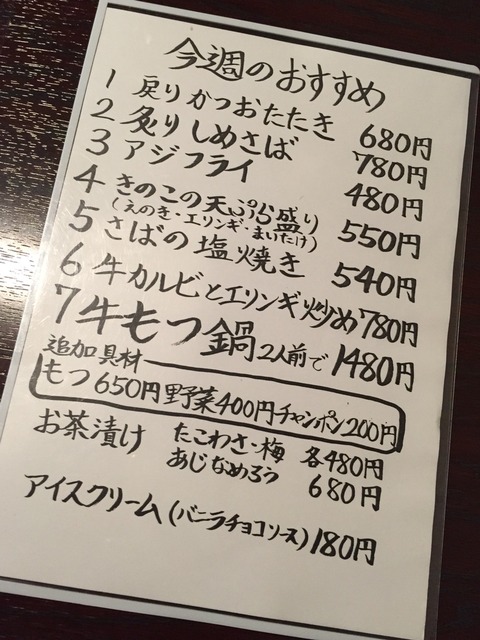 今週のおすすめ
1 戻りかつおたたき 680円
2 炙りしめさば 780円
3 アジフライ 480円
4 きのこの天ぷら盛り 550円
(えのき・エリンギ・まいたけ)
5 さばの塩焼き 540円
6 牛カルビとエリンギ炒め 780円
7 牛もつ鍋 2人前で 1480円
追加具材
もつ650円 野菜400円 チャンポン200円
お茶漬け たこわさ・梅 各480円
あじなめろう 680円
アイスクリーム(バニラチョコソース) 180円